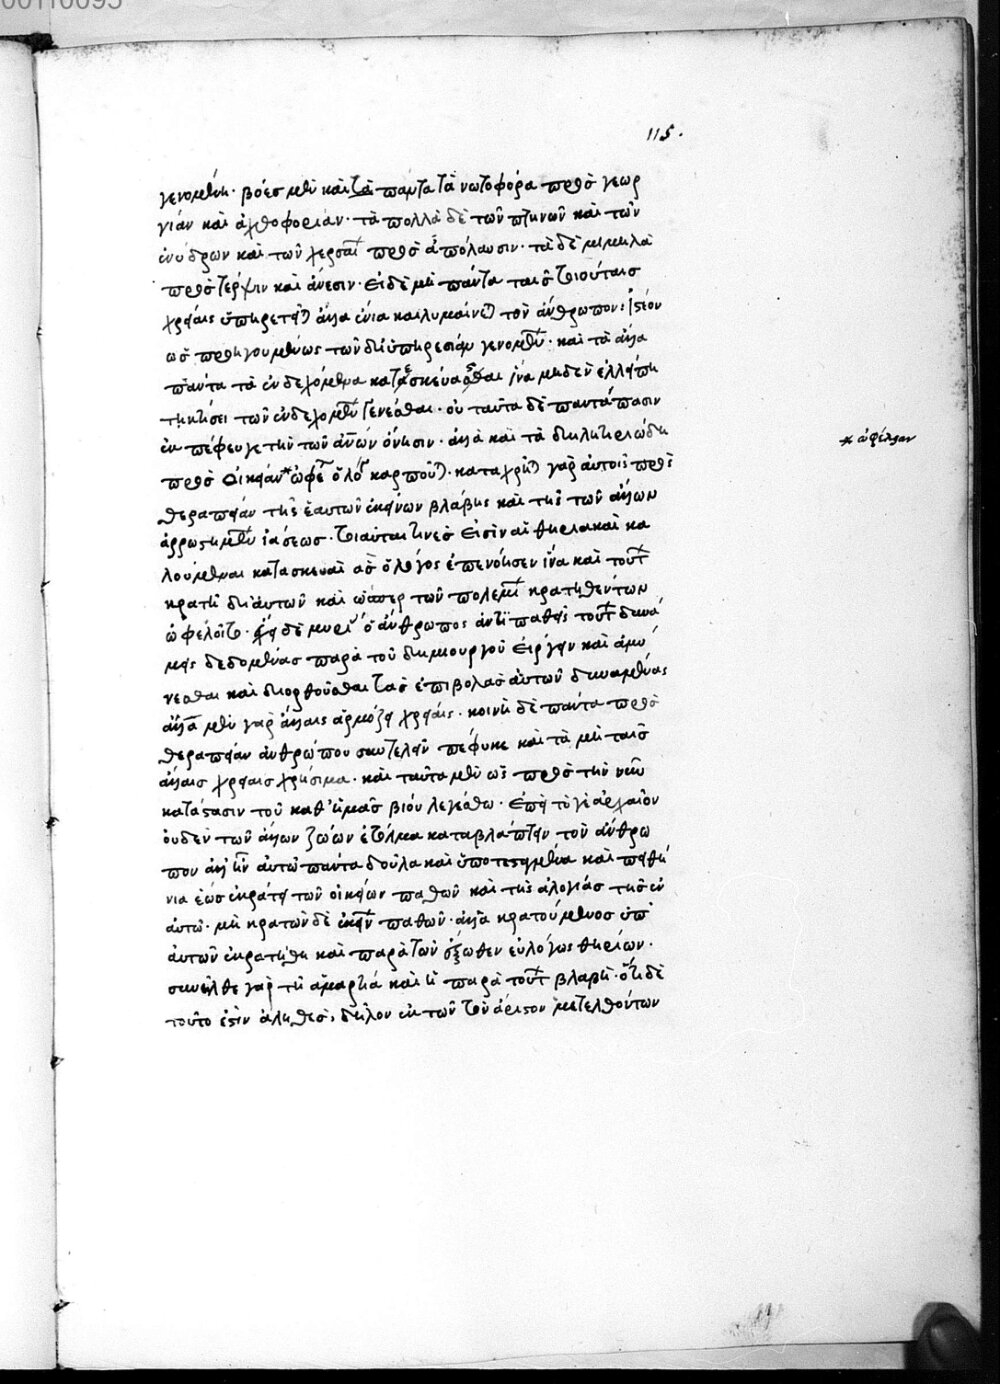 00110095
115.
γενομένη· βόες μὲν καὶ τὰ πάντα τὰ νωτοφόρα πρὸς γεωρ
γίαν καὶ ἀχθοφορίαν· τὰ πολλὰ δὲ τῶν πτηνῶν καὶ τῶν
ἐνύδρων καὶ τῶν χερσαί πρὸς ἀπόλαυσιν· τὰ δὲ μιμηλὰ
πρὸς τέρψιν καὶ ἄνεσιν· εἰ δὲ μὴ πάντα ταῖς τοιαύταις
χρείαις ὑπηρετεῖ ἀλλὰ ἔνια καὶ λυμαίνε τὸν ἄνθρωπον· ἰστέον
ὡς προηγουμένως τῶν δι' ὑπηρεσίαν γενομέν· καὶ τὰ ἄλλα
πάντα τὰ ἐνδεχόμενα κατεσκεύασθαι ἵνα μηδὲν ἐλλείπῃ
τῇ κτήσει τῶν ἐνδεχομέν γενέσθαι· οὐ ταῦτα δὲ παντάπασιν
ἐκπέφευγε τὴν τῶν ἀνων ὄνησιν· ἀλλὰ καὶ τὰ δηλητηριώδη
πρὸς οἰκείαν* ὠφε ὁ λόγ καρποῦ· καταχρῆ γὰρ αὐτοῖς πρὸς
* ὠφέλειαν
θεραπείαν τῆς ἑαυτῶν ἐκείνων βλάβης καὶ τῆς τῶν ἄλλων
ἀρρωστημάτ ἰάσεως· τοιαῦται τινες εἰσὶν αἱ θηριακαὶ κα
λούμεναι κατασκευαὶ ἃς ὁ λόγος ἐπενόησεν ἵνα καὶ τούτ
κρατῇ δι' αὐτῶν καὶ ὥσπερ τῶν πολεμί κρατηθέντων
ὠφελοῖτο· δὲ μυρί ὁ ἄνθρωπος ἀντιπαθεῖς τούτ δυνά
μεις δεδομένας παρὰ τοῦ δημιουργοῦ εἴργειν καὶ ἀμύ
νεσθαι καὶ διορθοῦσθαι τὰς ἐπιβολὰς αὐτῶν δυναμένας
ἄλλα μὲν γὰρ ἄλλαις ἁρμόζει χρείαις· κοινῇ δὲ πάντα πρὸς
θεραπείαν ἀνθρώπου συντελεῖν πέφυκε καὶ τὰ μὴ ταῖς
ἄλλαις χρείαις χρήσιμα· καὶ ταῦτα μὲν ὡς πρὸς τὴν νῦν
κατάστασιν τοῦ καθ' ἡμᾶς βίου λελέχθω· ἐπεὶ τό γε ἀρχαῖον
οὐδὲν τῶν ἄλλων ζώων ἐτόλμα καταβλάπτειν τὸν ἄνθρω
πον ἀλλ' ἦν αὐτῷ πάντα δοῦλα καὶ ὑποτεταγμένα καὶ πειθή
νια ἕως ἐκράτει τῶν οἰκείων παθῶν καὶ τῆς ἀλογίας τῆς ἐν
αὐτῷ· μὴ κρατῶν δὲ ἐκείν παθῶν· ἀλλὰ κρατούμενος ὑπ'
αὐτῶν ἐκρατήθη καὶ παρὰ τῶν ἔξωθεν εὐλόγως θηρίων·
συνῆλθε γὰρ τῇ ἁμαρτίᾳ καὶ ἡ παρὰ τούτ βλάβη· ὅτι δὲ
τοῦτο ἐστὶν ἀληθὲς, δῆλον ἐκ τῶν τὸν ἄριστον μετελθόντων